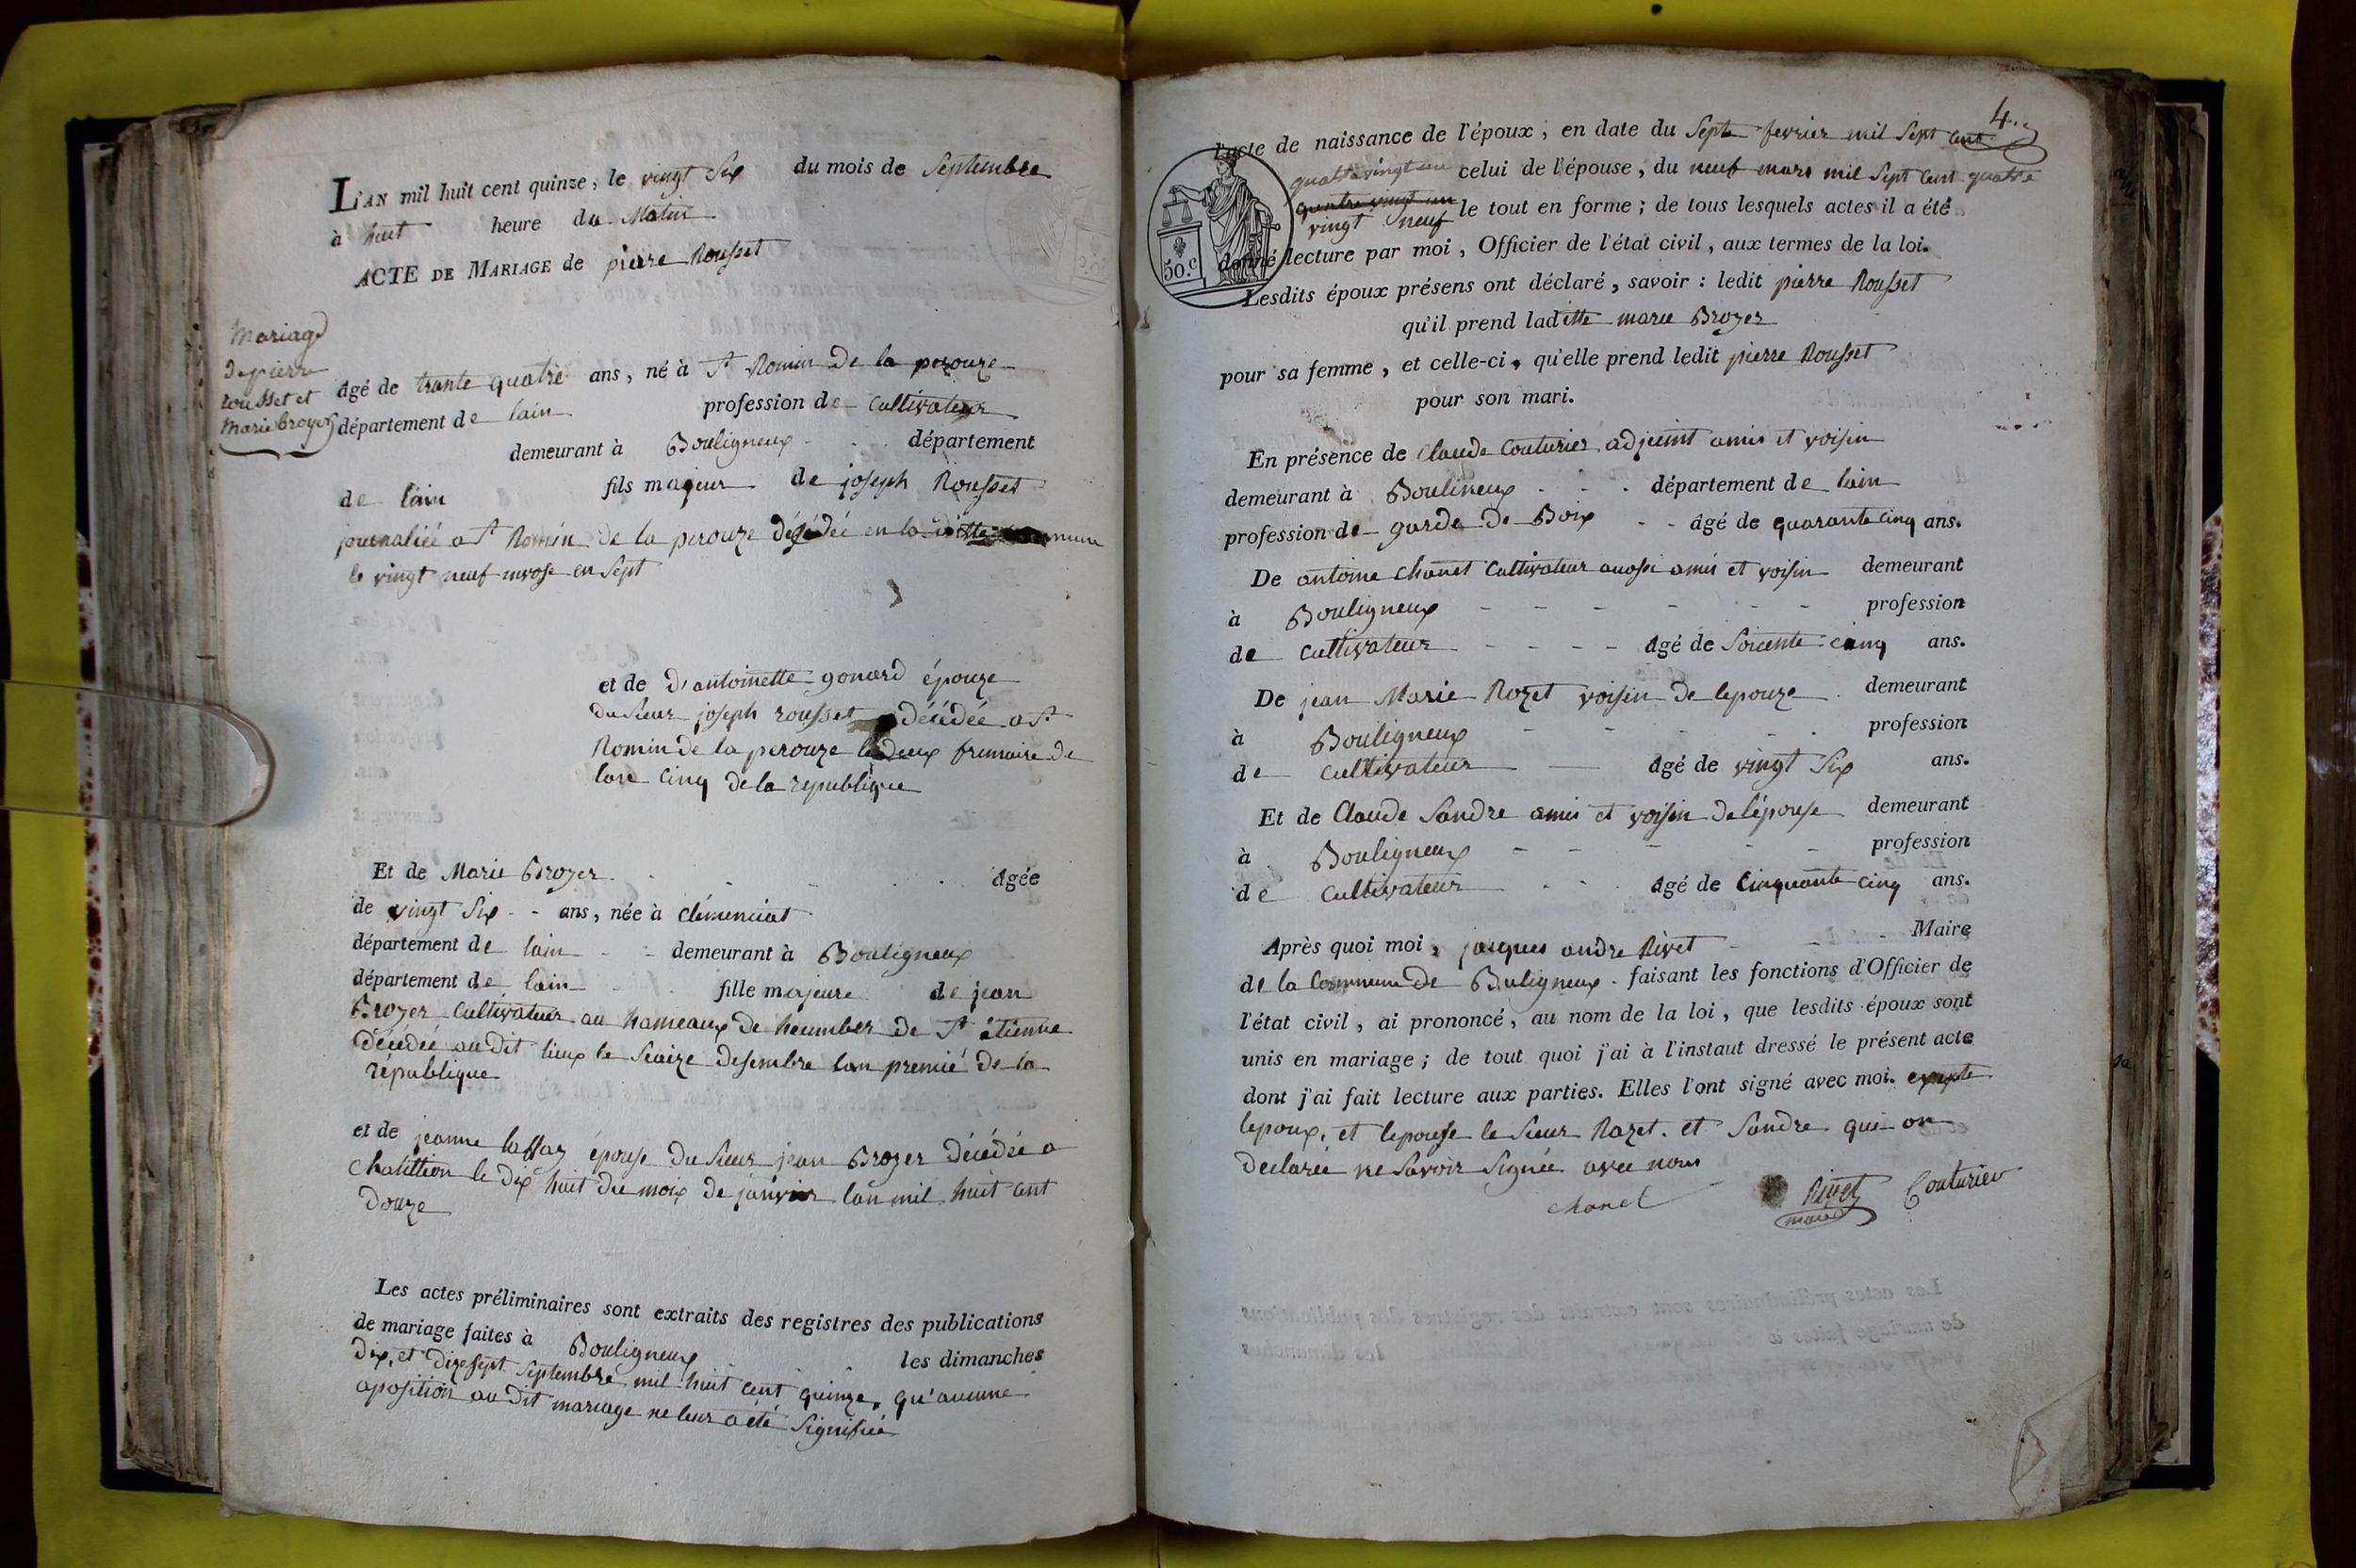 L'AN mil huit cent quinze, le vingt Six du mois de Septembre
à huit heure du Matin
ACTE DE MARIAGE de pierre Rousset
Mariage
de pierre
rousset et
Marie broyer
âgé de trante quatre ans, né à St Romin de la perouze
département de lain profession de Cultivateur
demeurant à Bouligneux département
de lain fils majeur de joseph Rousset
journalié a St Romin de la perouze décédée en la ditte commune
le vingt neuf nivose en Sept
et de d'antoinette gonard épouze
du sieur joseph rousset décédée a St
Romin de la perouze le deux frimaire de
lan Cinq de la republique
Et de Marie Broyer âgée
de vingt Six ans, née à Clémenciat
département de lain demeurant à Bouligneux
département de lain fille majeure de jean
Broyer Cultivateur au hameaux de de St étienne
décédée au dit lieux le Seaize desembre lan premié de la
république
et de jeanne épouse du Sieur jean Broyer décédée a
Chatillion le dix huit du moix de janvier lan mil huit cent
douze
Les actes préliminaires sont extraits des registres des publications
de mariage faites à Bouligneux les dimanches
dix, et dixesept Septembre mil huit cent quinze, qu'aucune
aposition au dit mariage ne leur a été Signifiée
4
l'acte de naissance de l'époux, en date du Sept fevrier mil Sept cent
quatre vingt un celui de l'épouse, du neuf mars mil Sept cent quatre
quatre vingt un
vingt neuf le tout en forme; de tous lesquels actes il a été
donné lecture par moi, Officier de l'état civil, aux termes de la loi.
50.c
Lesdits époux présens ont déclaré, savoir: ledit pierre Rousset
qu'il prend laditte marie Broyer
pour sa femme, et celle-ci, qu'elle prend ledit pierre Rousset
pour son mari.
En présence de Claude Couturier adjoint amis et voisin
demeurant à Boulineux département de lain
profession de garde de Boix âgé de quarante cinq ans.
De antoine Chanet Cultivateur auossi amis et voisin demeurant
à Bouligneux profession
de Cultivateur âgé de Soicente cinq ans.
De jean Marie Rozet voisin de lepouze demeurant
à Bouligneux profession
de Cultivateur âgé de vingt Six ans.
Et de Claude Sandre amis et voisin de l'épouse demeurant
à Bouligneux profession
de Cultivateur âgé de Cinquante cinq ans.
Après quoi moi, jacques andre Rivet Maire
de la Commune de Buligneux faisant les fonctions d'Officier de
l'état civil, ai prononcé, au nom de la loi, que lesdits époux sont
unis en mariage; de tout quoi j'ai à l'instaut dressé le présent acte
dont j'ai fait lecture aux parties. Elles l'ont signé avec moi. exepte
lepoux, et lepouse le Sieur Razet. et Sandre qui on
declarée ne Savoir Signée avec nous
Chanel Rivet Couturier
maire